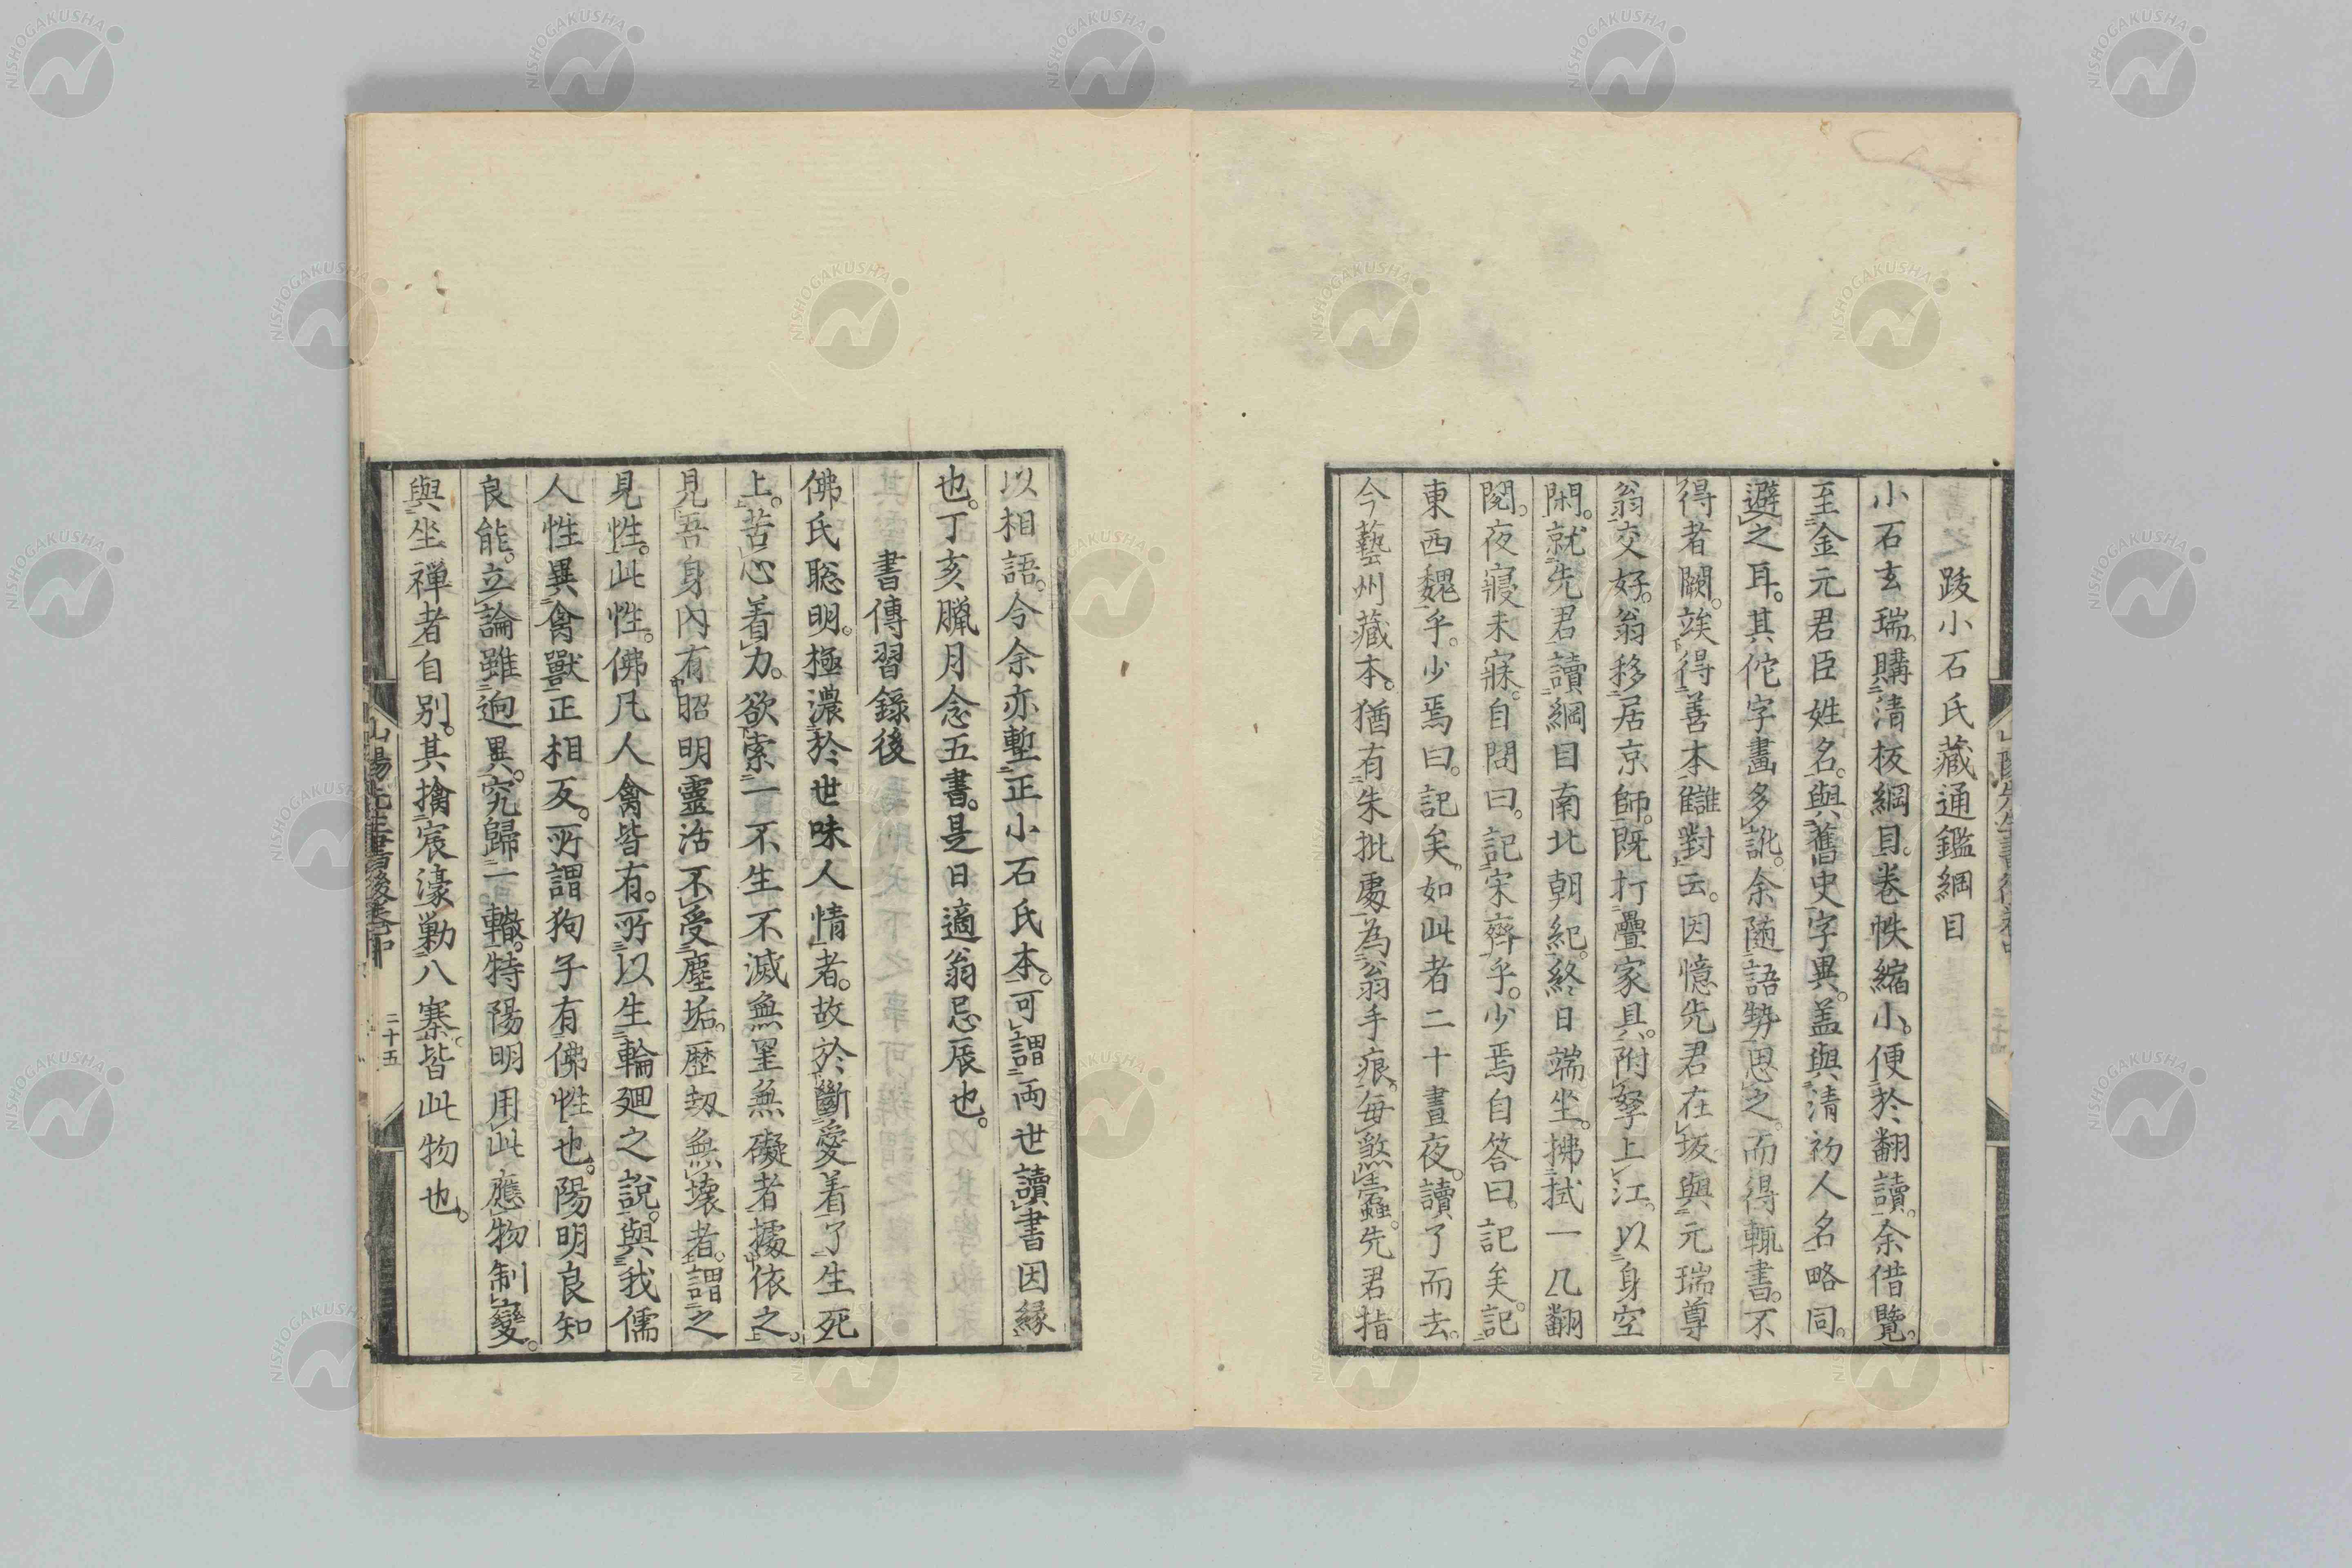 跋小石氏藏通鑑綱目
小石玄瑞。購清板綱目。卷帙縮小。便於翻讀。余借覽。
至金元君臣姓名。與舊史字異。盖與清初人名略同。
避之耳。其佗字畫多訛。余隨語勢思之。而得輒書。不
得者闕。竢得善本讎對云。因憶先君在坂與元瑞尊
翁交好。翁移居京師。既打疊家具。附孥上江。以身空
閑。就先君讀綱目南北朝紀。終日端坐。拂拭一几翻
閱。夜寢未寐。自問曰。記宋齊乎。少焉自答曰。記矣。記
東西魏乎。少焉曰。記矣。如此者二十晝夜。讀了而去。
今藝州藏本。猶有朱批處。為翁手痕。每煞蠧。先君指
以相語。今余亦塹正小石氏本。可謂兩世讀書因緣
也。丁亥臘月念五書。是日適翁忌辰也。
書傳習錄後
佛氏聡明。極濃於世味人情者。故於斷愛着了生死
上。苦心着力。欲索一不生不滅無罣無礙者據依之。
見吾身內有昭明靈活不受塵垢。歷劫無壞者。謂之
見性。此性。佛凡人禽皆有。所以生輪廻之說。與我儒
人性異禽獸正相反。所謂狗子有佛性也。陽明良知
良能。立論雖逈異。究歸一轍。特陽明用此應物制變。
與坐禅者自別。其擒宸濠勦八寨。皆此物也。
山陽先生書後卷中
二十五
NISHOGAKUSHA